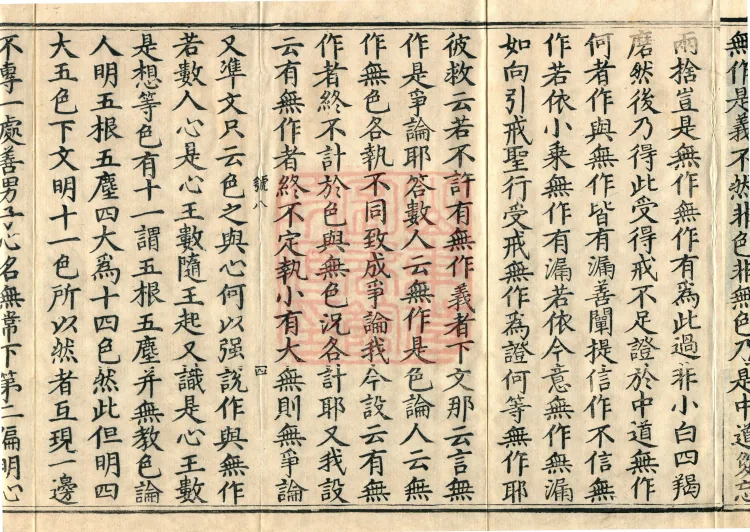 無作是義不然非色非無色乃是中道雙忘
兩捨豈是無作無作有為此過非小白四羯
磨然後乃得此受得戒不足證於中道無作
何者作與無作皆有漏善闡提信作不信無
作若依小乗無作有漏若依今意無作無漏
如向引戒聖行受戒無作為證何等無作耶
彼救云若不許有無作義者下文那云言無
作是爭論耶答數人云無作是色論人云無
作無色各執不同致成爭論我今設云有無
作者終不計於色與無色況各計耶又我設
云有無作者終不定執小有大無則無爭論
號八
四
又準文只云色之與心何以强說作與無作
若數人心是心王數隨王起又識是心王數
是想等色有十一謂五根五塵并無教色論
人明五根五塵四大為十四色然此但明四
大五色下文明十一色所以然者互現一邊
不專一處善男子心名無常下第二偏明心